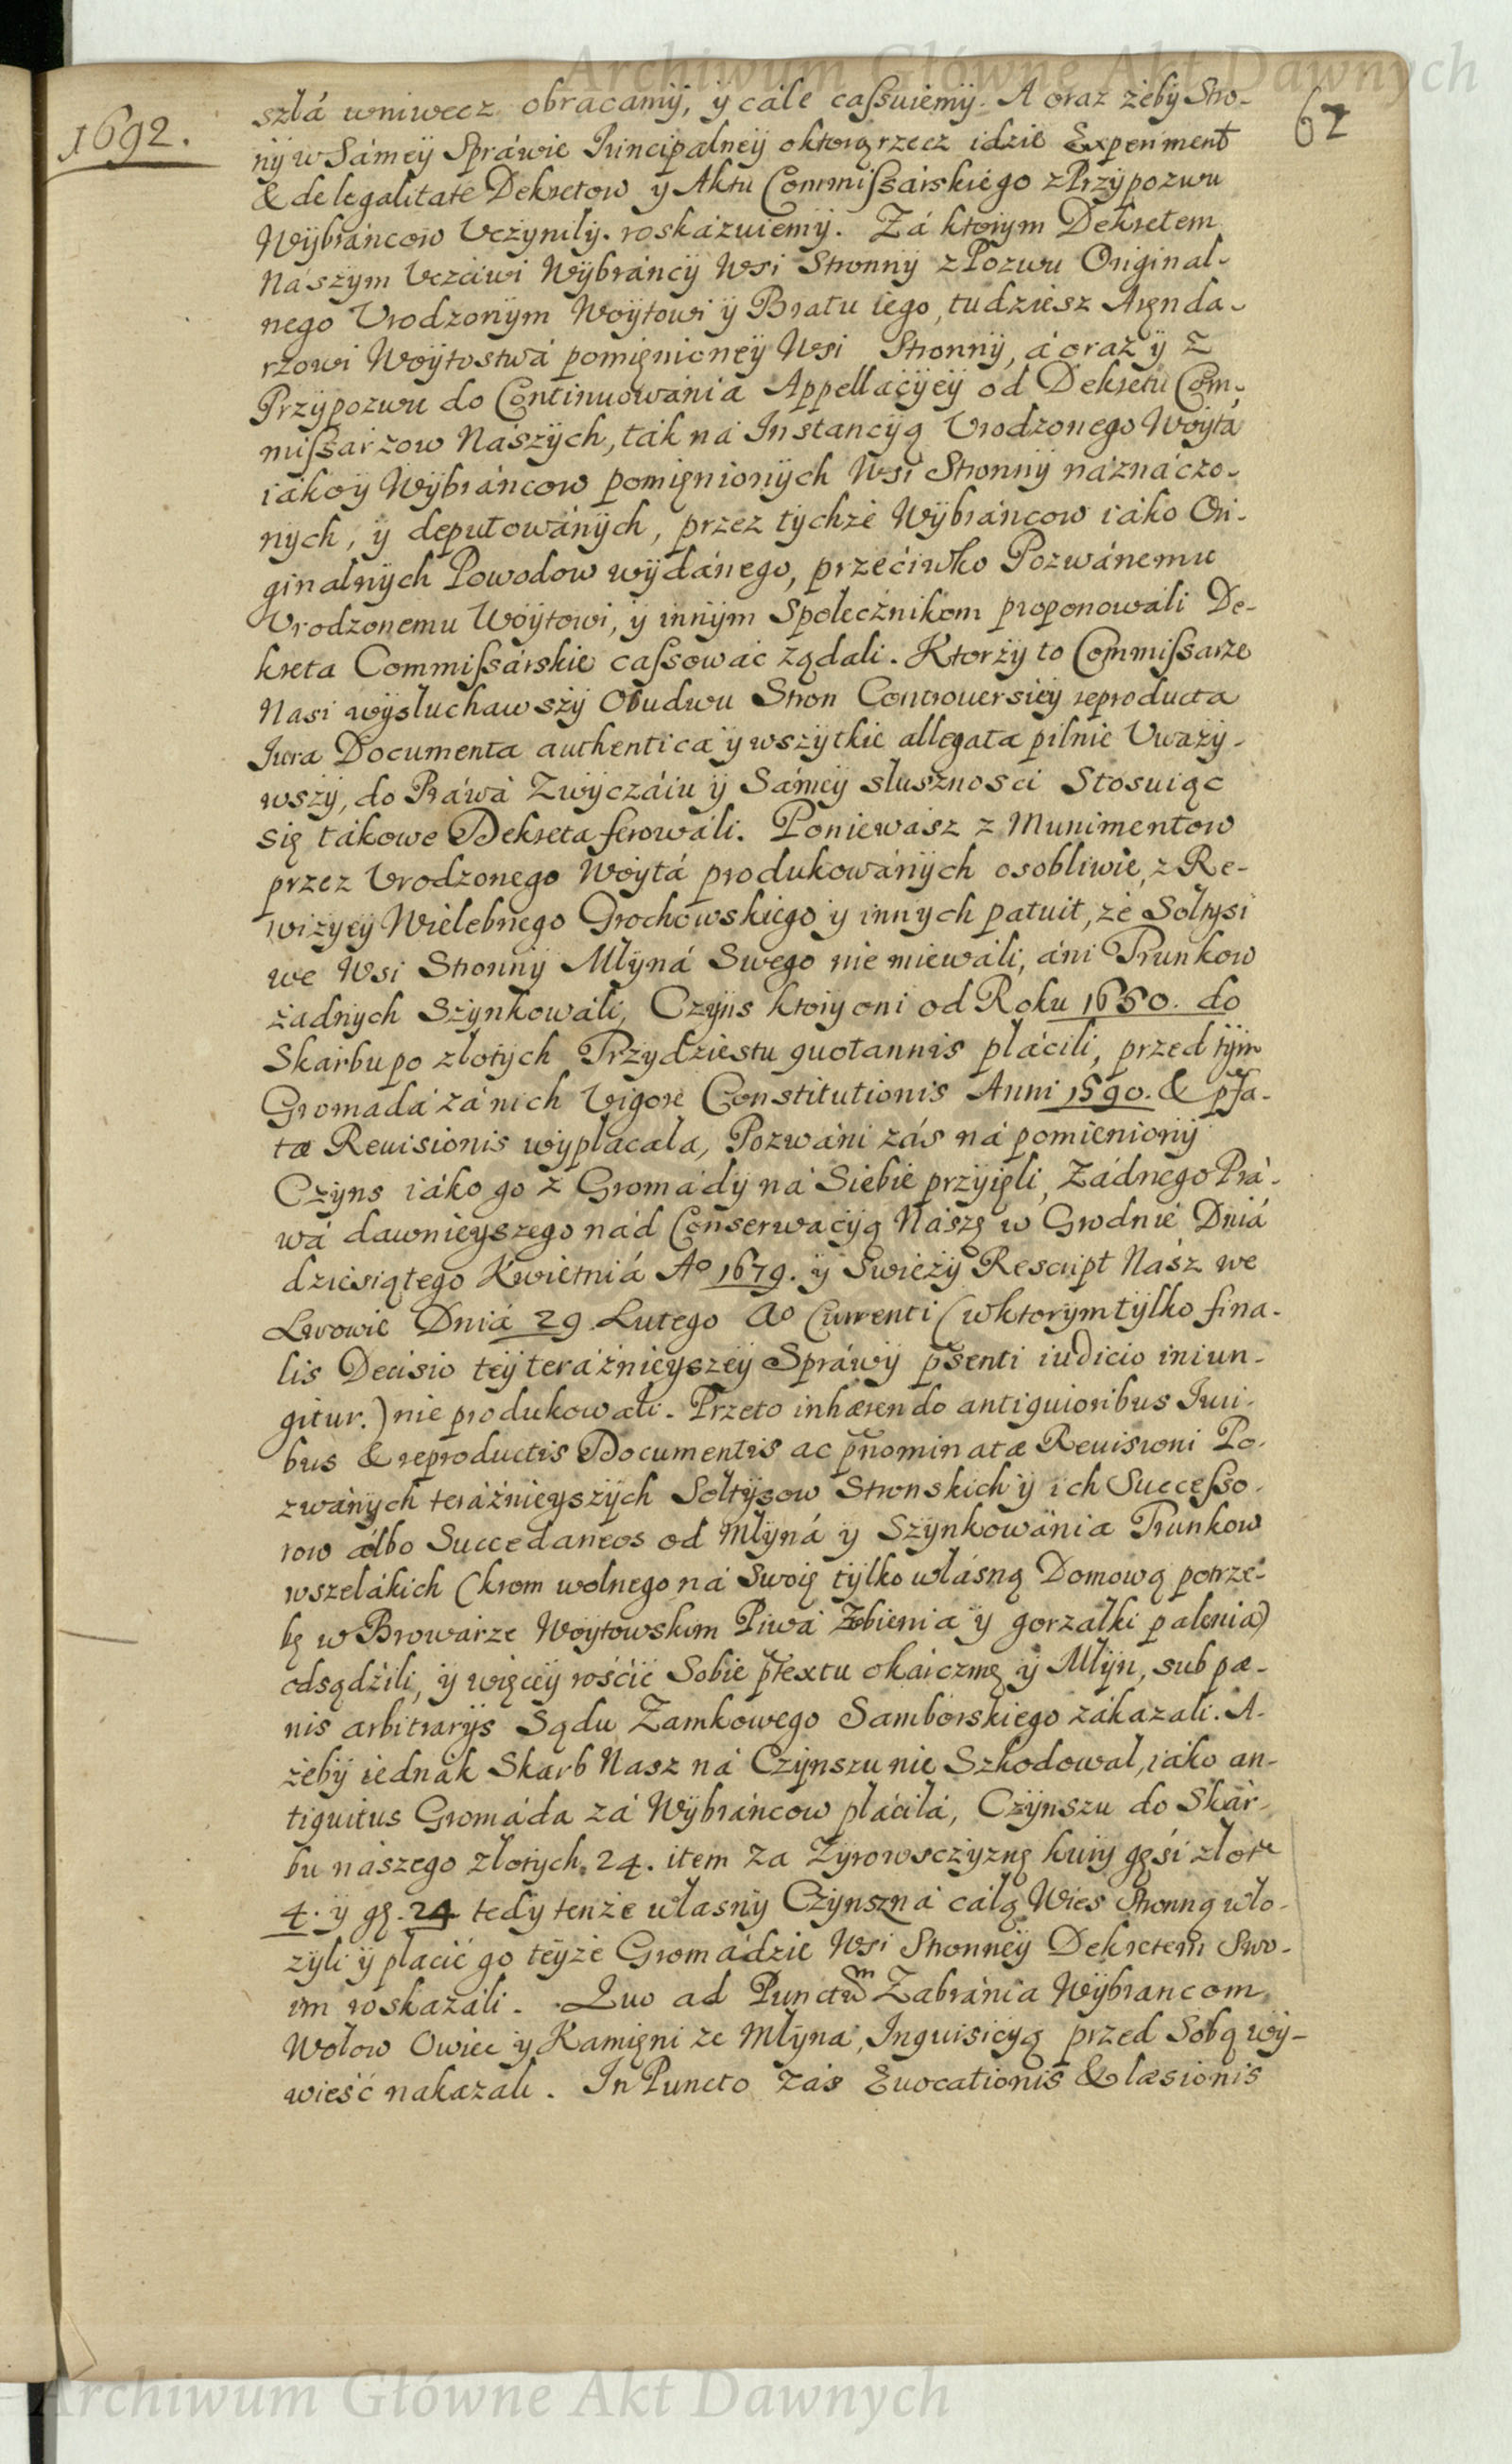 Archiwum Główne Akt Dawnych
62
1692.
szlá wniwecz obracamÿ, ÿ cále caſsuiemÿ. A oraz żebÿ Stro-
nÿ w Sámeÿ Spráwie Principalneÿ oktorą rzecz idzie Experiment
& de legalitate Dekretow ÿ Aktu Commiſsárskiego z Przÿpozwu
Wÿbráncow Vczÿnilÿ. roskázuiemÿ. Zá ktorym Dekretem
Nászÿm Vczciwi Wÿbráncÿ Wsi Stronnÿ z Pozwu Original-
nego Vrodzonÿm Woÿtowi ÿ Bratu iego, tudziesz Aręnda-
rzowi Woÿtostwá pomięnioneÿ Wsi Stronnÿ, á oraz ÿ z
Przÿpozwu do Continuowánia Appellacÿeÿ od Dekretu Com-
miſsarzow Nászÿch, ták ná Instancÿą Vrodzonego Woÿtá
iákoÿ Wÿbráncow pomięnionÿch Wsi Stronnÿ náznáczo-
nÿch, ÿ deputowánÿch, przez tÿchże Wÿbráncow iáko Ori-
ginalnÿch Powodow wÿdánego, przeciwko Pozwánemu
Vrodzonemu Woÿtowi, ÿ innÿm Społecżnikom proponowáli De-
kreta Commiſsárskie caſsowác żądali. Ktorzÿ to Commiſsarze
Nasi wÿsłuchawszÿ Obudwu Stron Controuersieÿ reproducta
Iura Documenta authentica ÿ wszÿtkie allegata pilnie Vważÿ-
wszÿ, do Práwá Zwÿczáiu ÿ Sámeÿ słusznosci Stosuiąc
się tákowe Dekreta ferowáli. Poniewász z Munimentow
przez Vrodzonego Woÿtá produkowánÿch osobliwie z Re-
wizÿeÿ Wielebnego Grochowskiego ÿ innych patuit, że Soltysi
we Wsi Stronnÿ Mlÿná Swego nie miewáli, áni Trunkow
żadnÿch Szÿnkowáli, Czÿns ktory oni od Roku 1650. do
Skárbu po złotÿch Trzydziestu quotannis plácili, przed tÿm
Gromádá zá nich Vigore Constitutionis Anni 1590. & pſa-
tæ Reuisionis wÿplacala, Pozwáni zás ná pomienionÿ
Czÿns iáko go z Gromádÿ ná Siebie przÿięli, Żádnego Prá-
wá dawnieÿszego nád Conserwácÿą Nászę w Grodnie Dniá
dziesiątego Kwietniá Ao 1679. ÿ Swieżÿ Rescript Nász we
Lwowie Dniá 29. Lutego Ao Currenti (wktorym tÿlko fina-
lis Decisio teÿ teráżnieÿszeÿ Spráwÿ pśenti iudicio iniun-
gitur.) nie produkowáli. Przeto inhærendo antiquioribus Iuri-
bus & reproductis Documentis ac pnominatæ Reuisioni Po-
zwánÿch teráżnieÿszÿch Soltÿsow Stronskich ÿ ich Succeſso-
row álbo Succedaneos od Mlÿná ÿ Szÿnkowánia Trunkow
wszelákich (krom wolnego ná Swoię tÿlko włásną Domową potrze-
bę w Browárze Woÿtowskim Piwá Zrobienia ÿ gorzałki palenia)
odsądzili, ÿ więceÿ rościć Sobie ptextu okaiczmę ÿ Mlÿn, sub pæ-
nis arbitrarÿs Sądu Zamkowego Samborskiego zákazali. A-
żebÿ iednák Skarb Nasz ná Czÿnszu nie Szkodowal, iáko an-
tiquitus Gromáda zá Wÿbráncow plácilá, Czÿnszu do Skár-
bu nászego złotÿch. 24. item Za Żyrowsczÿznę kurÿ gęsi złote
4. ÿ gę. 24 tedÿ tenże własnÿ Czÿnsz ná cálą Wies Stronną wło-
żÿli ÿ płacić go teÿże Gromádzie Wsi Stronneÿ Dekretem Swo-
im roskazáli. Quo ad Punctum Zabránia Wÿbrancom
Wołow Owiec ÿ Kamięni ze Mlÿna, Inquisicÿą przed Sobą wÿ-
wieść nakazali. In Puncto Zás Euocationis & læsionis
Archiwum Główne Akt Dawnych